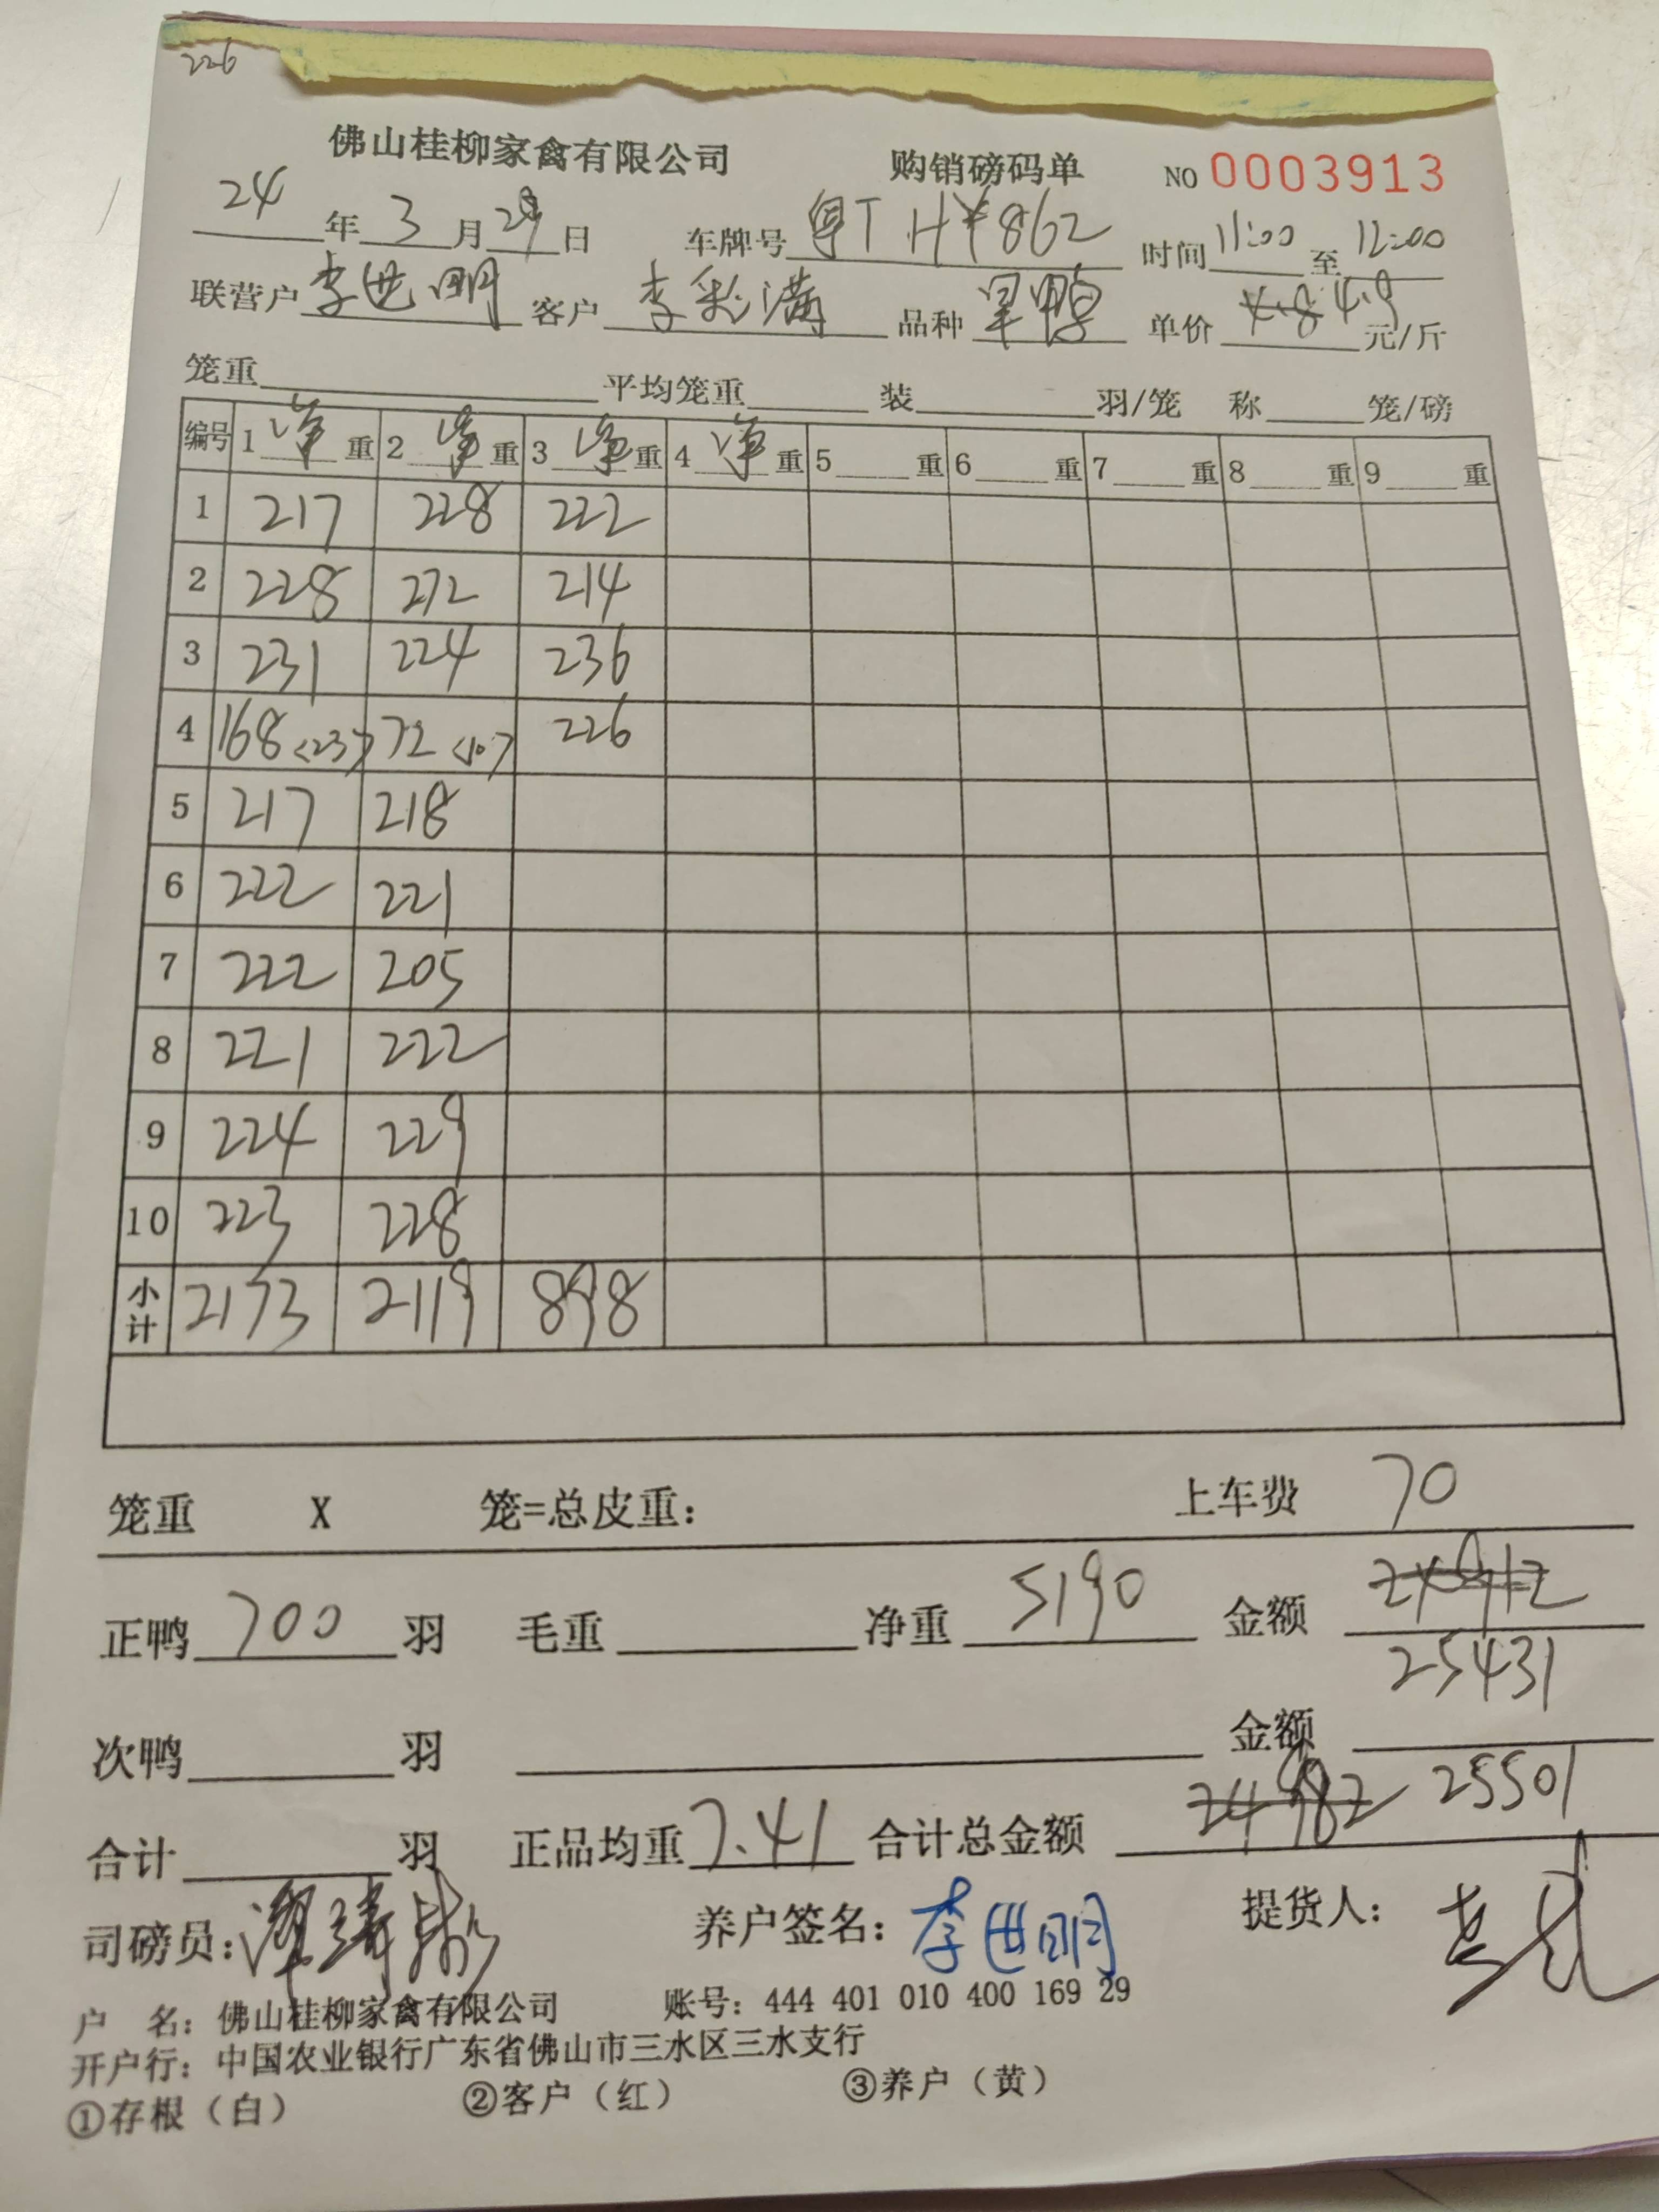 226
佛山桂柳家禽有限公司 购销磅码单 NO 0003913
24年3月29日 车牌号 粤T 862 时间11:00至12:00
联营户李世明 客户李彩满 品种旱鸭 单价4.8 4.9元/斤
笼重 平均笼重 装 羽/笼 称 笼/磅
编号 1净重 2净重 3净重 4净重 5重 6重 7重 8重 9重
1 217 228 222
2 228 272 214
3 231 224 236
4 168<23> 72<10> 226
5 217 218
6 222 221
7 222 205
8 221 222
9 224 229
10 223 228
小计 2173 2119 898
笼重 X 笼=总皮重: 上车费 70
正鸭700羽 毛重 净重5190 金额
25431
次鸭 羽 金额
合计 羽 正品均重7.41 合计总金额 24982 25501
司磅员: 养户签名:李世明 提货人:
户 名: 佛山桂柳家禽有限公司 账号: 444 401 010 400 169 29
开户行: 中国农业银行广东省佛山市三水区三水支行
①存根(白) ②客户(红) ③养户(黄)